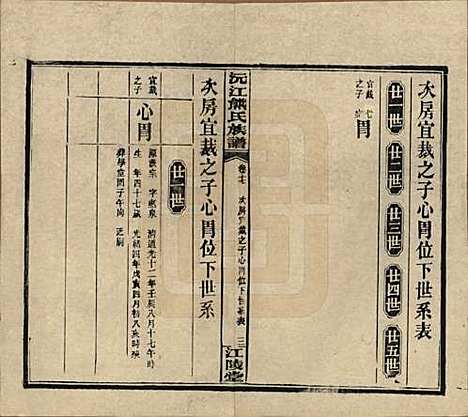 次房宜裁之子心胃位下世系表
廿一世
廿二世
廿三世
廿四世
廿五世
宜裁
之子
胃
沅江熊氏族譜
卷七
次房宜裁之子心胃位下世系表
三
江陵堂
次房宜裁之子心胃位下世系
廿一世
宜裁
之子
心胃
清道光十二年壬辰八月十七午時
生
年四十七歲
光緒四年戊寅四月初八癸時歿
葬學堂園子午向